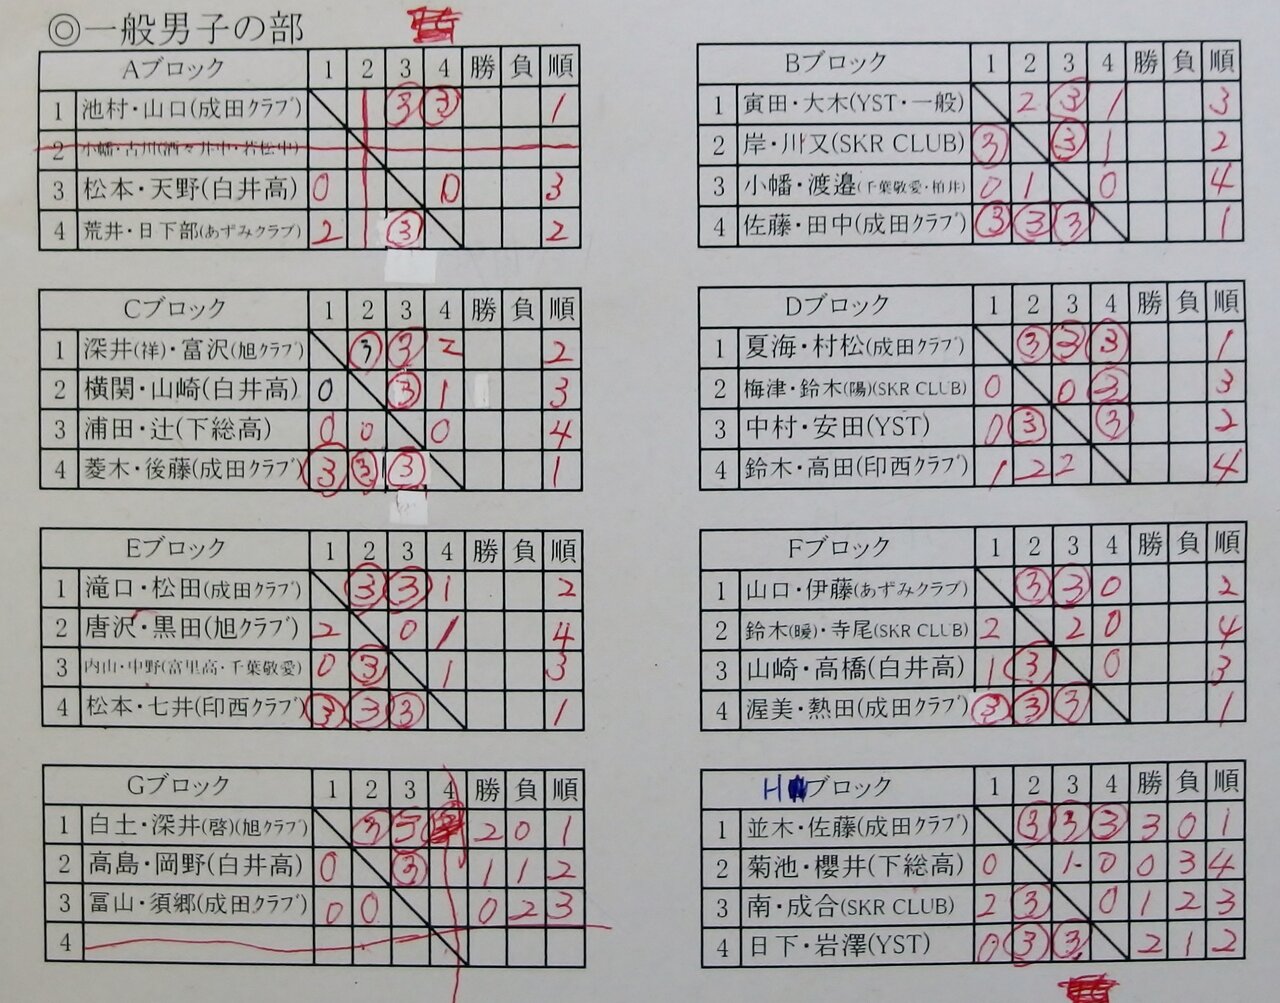 ◎一般男子の部
Aブロック 1 2 3 4 勝 負 順
1 池村・山口(成田クラブ) 3 3 1
2 小幡・古川(酒々井中・若松中)
3 松本・天野(白井高) 0 0 3
4 荒井・日下部(あずみクラブ) 2 3 2
Bブロック 1 2 3 4 勝 負 順
1 寅田・大木(YST・一般) 2 3 1 3
2 岸・川又(SKR CLUB) 3 3 1 2
3 小幡・渡邉(千葉敬愛・柏井) 0 1 0 4
4 佐藤・田中(成田クラブ) 3 3 3 1
Cブロック 1 2 3 4 勝 負 順
1 深井(祥)・富沢(旭クラブ) 3 3 2 2
2 横関・山崎(白井高) 0 3 1 3
3 浦田・辻(下総高) 0 0 0 4
4 菱木・後藤(成田クラブ) 3 3 3 1
Dブロック 1 2 3 4 勝 負 順
1 夏海・村松(成田クラブ) 3 3 3 1
2 梅津・鈴木(陽)(SKR CLUB) 0 0 3 3
3 中村・安田(YST) 0 3 3 2
4 鈴木・高田(印西クラブ) 1 2 2 4
Eブロック 1 2 3 4 勝 負 順
1 滝口・松田(成田クラブ) 3 3 1 2
2 唐沢・黒田(旭クラブ) 2 0 1 4
3 内山・中野(富里高・千葉敬愛) 0 3 1 3
4 松本・七井(印西クラブ) 3 3 3 1
Fブロック 1 2 3 4 勝 負 順
1 山口・伊藤(あずみクラブ) 3 3 0 2
2 鈴木(暖)・寺尾(SKR CLUB) 2 2 0 4
3 山崎・高橋(白井高) 1 3 0 3
4 渥美・熱田(成田クラブ) 3 3 3 1
Gブロック 1 2 3 4 勝 負 順
1 白土・深井(啓)(旭クラブ) 3 3 2 0 1
2 高島・岡野(白井高) 0 3 1 1 2
3 冨山・須郷(成田クラブ) 0 0 0 2 3
4
Hブロック 1 2 3 4 勝 負 順
1 並木・佐藤(成田クラブ) 3 3 3 3 0 1
2 菊池・櫻井(下総高) 0 1 0 0 3 4
3 南・成合(SKR CLUB) 2 3 0 1 2 3
4 日下・岩澤(YST) 0 3 3 2 1 2